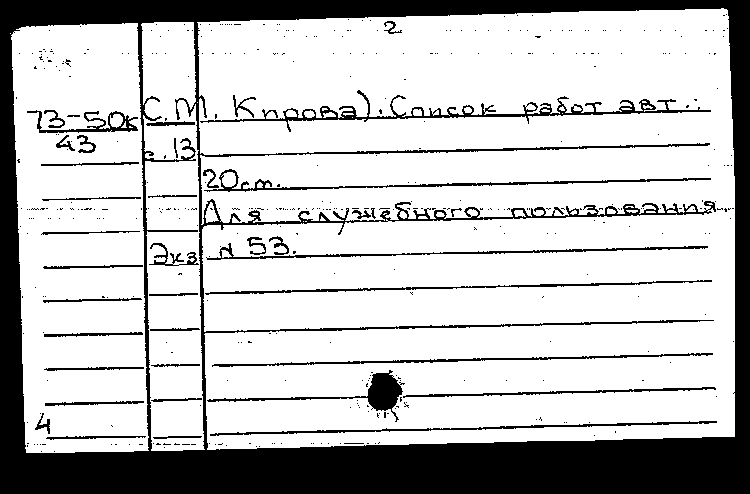 2
73-50к С.М. Кирова). Список работ авт.:
43 с. 13
20 см.
Для служебного пользования.
Экз N 53.
4